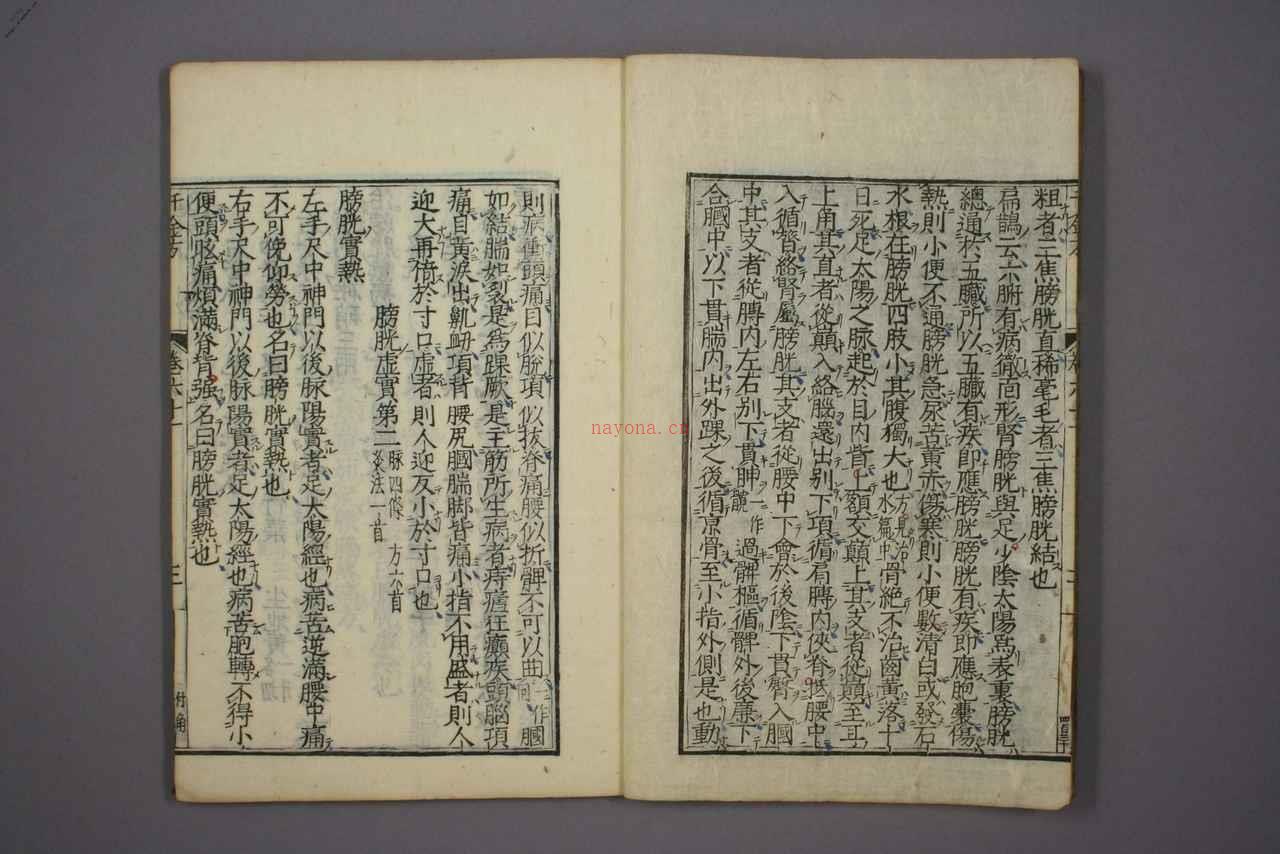 粗者三焦膀胱直稀毫毛者三焦膀胱結也
扁鵲云六腑有病徹面形腎膀胱與足少陰太陽爲表裏膀胱
總通於五臟所以五臟有疾即應膀胱膀胱有疾即應胞囊傷
熱則小便不通膀胱急尿苦黄赤傷寒則小便數清白或發石
水根在膀胱四肢小其腹獨大也方見治水篇中骨絶不治齒黄落十
日死足太陽之脉起於目内眥上額交顛上其支者從顛至耳
上角其直者從顛入絡腦還出别下項循肩膊内俠脊抵腰中
入循膂絡腎屬膀胱其支者從腰中下會於後陰下貫臀入膕
中其支者從膊内左右别下貫胂一作髖過髀樞循髀外後廉下
合膕中以下貫腨内出外踝之後循京骨至小指外側是也動
則病衝頭痛目似脫項似拔脊痛腰似折髀不可以曲膕
如結腨如裂是爲踝厥是主筋所生病者痔瘧狂癲疾頭腦項
痛目黄淚出鼽衂項背腰尻膕腨脚皆痛小指不用盛者則人
迎大再倍於寸口虚者則人迎反小於寸口也
膀胱虚實第二脉四條 方六首 灸法一首
膀胱實熱
左手尺中神門以後脉陽實者足太陽經也病苦逆滿腰中痛
不可俛仰勞也名曰膀胱實熱也
右手尺中神門以後脉陽實者足太陽經也病苦胞轉不得小
便頭眩痛煩滿脊背强名曰膀胱實熱也
千金方
卷六十一
三
nayona.cn